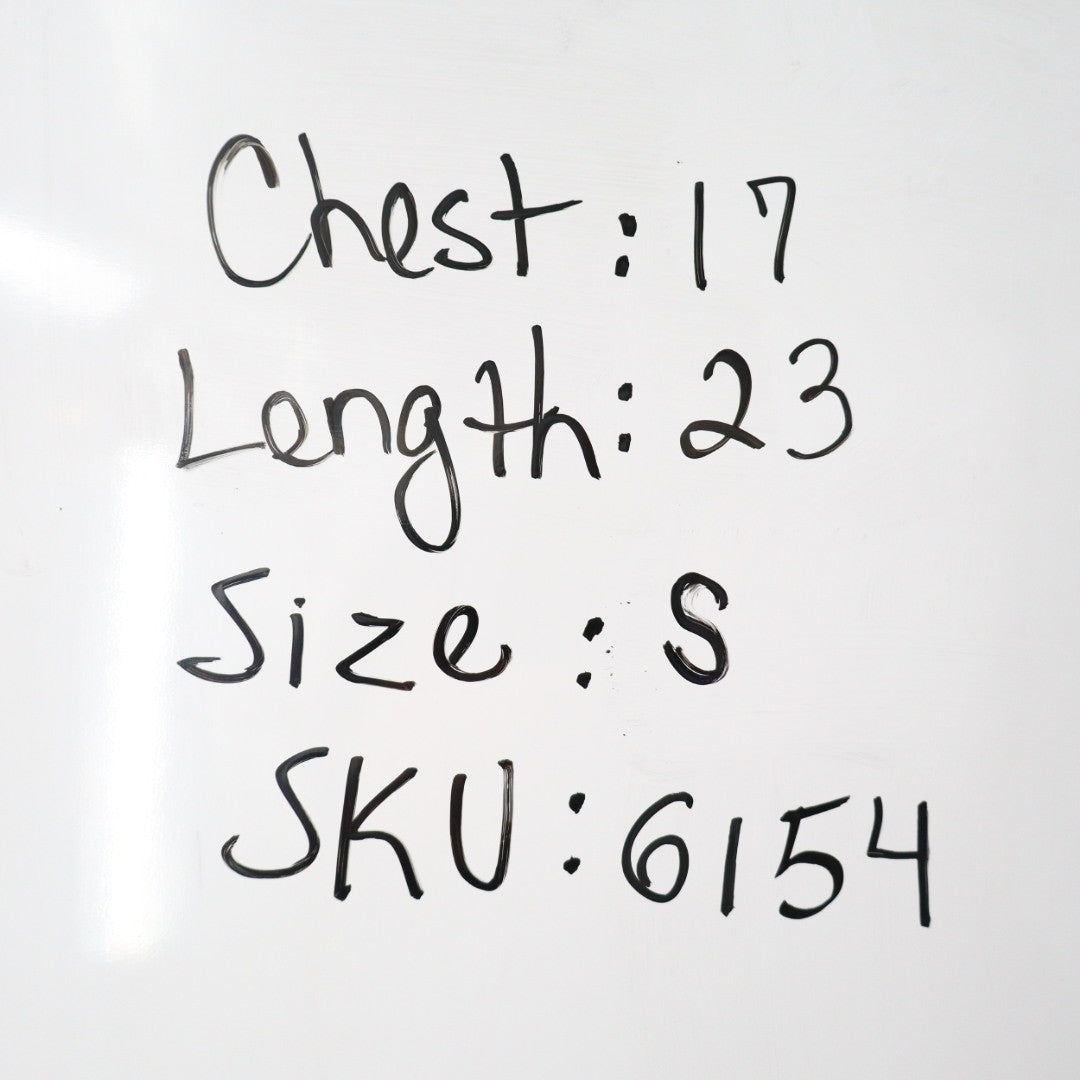 Chest: 17
Length: 23
Size: S
SKU: 6154